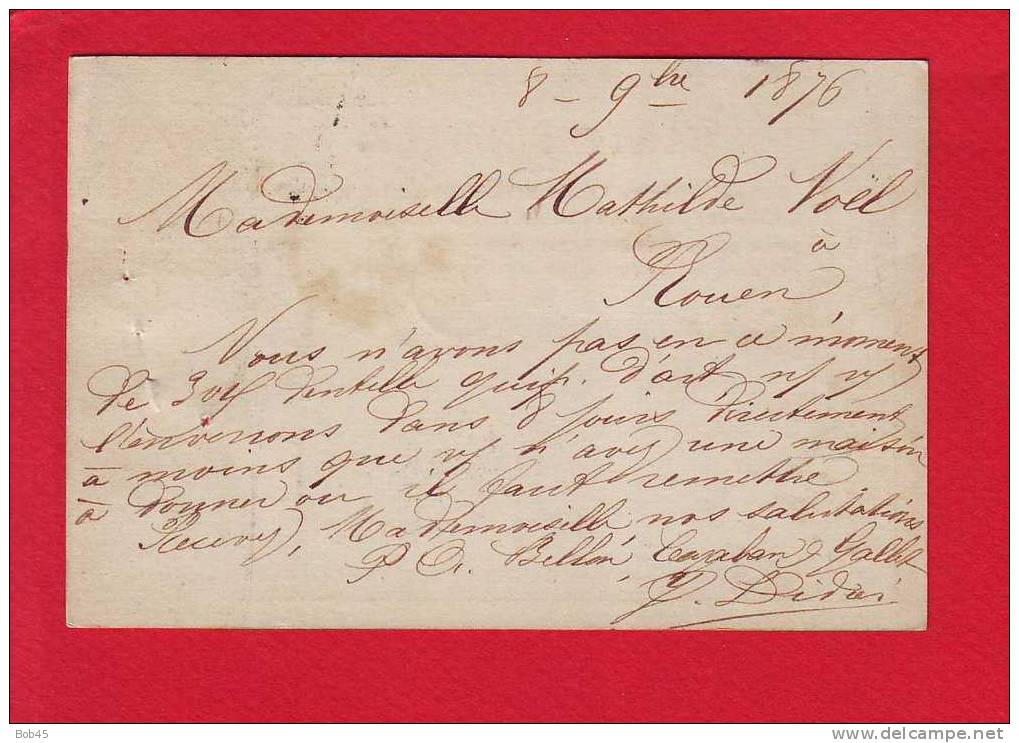 8 - 9bre 1876
Mademoiselle Mathilde Noël
à
Rouen
Nous n'avons pas en ce moment
de dentelle d'art
l'enverrons dans 8 jours directement
à moins que n'avez une maison
à donner ou il faut remettre
Recevez, Mademoiselle, nos salutations
P Bellon, &
J. Didier
Bob45
delcampe.net